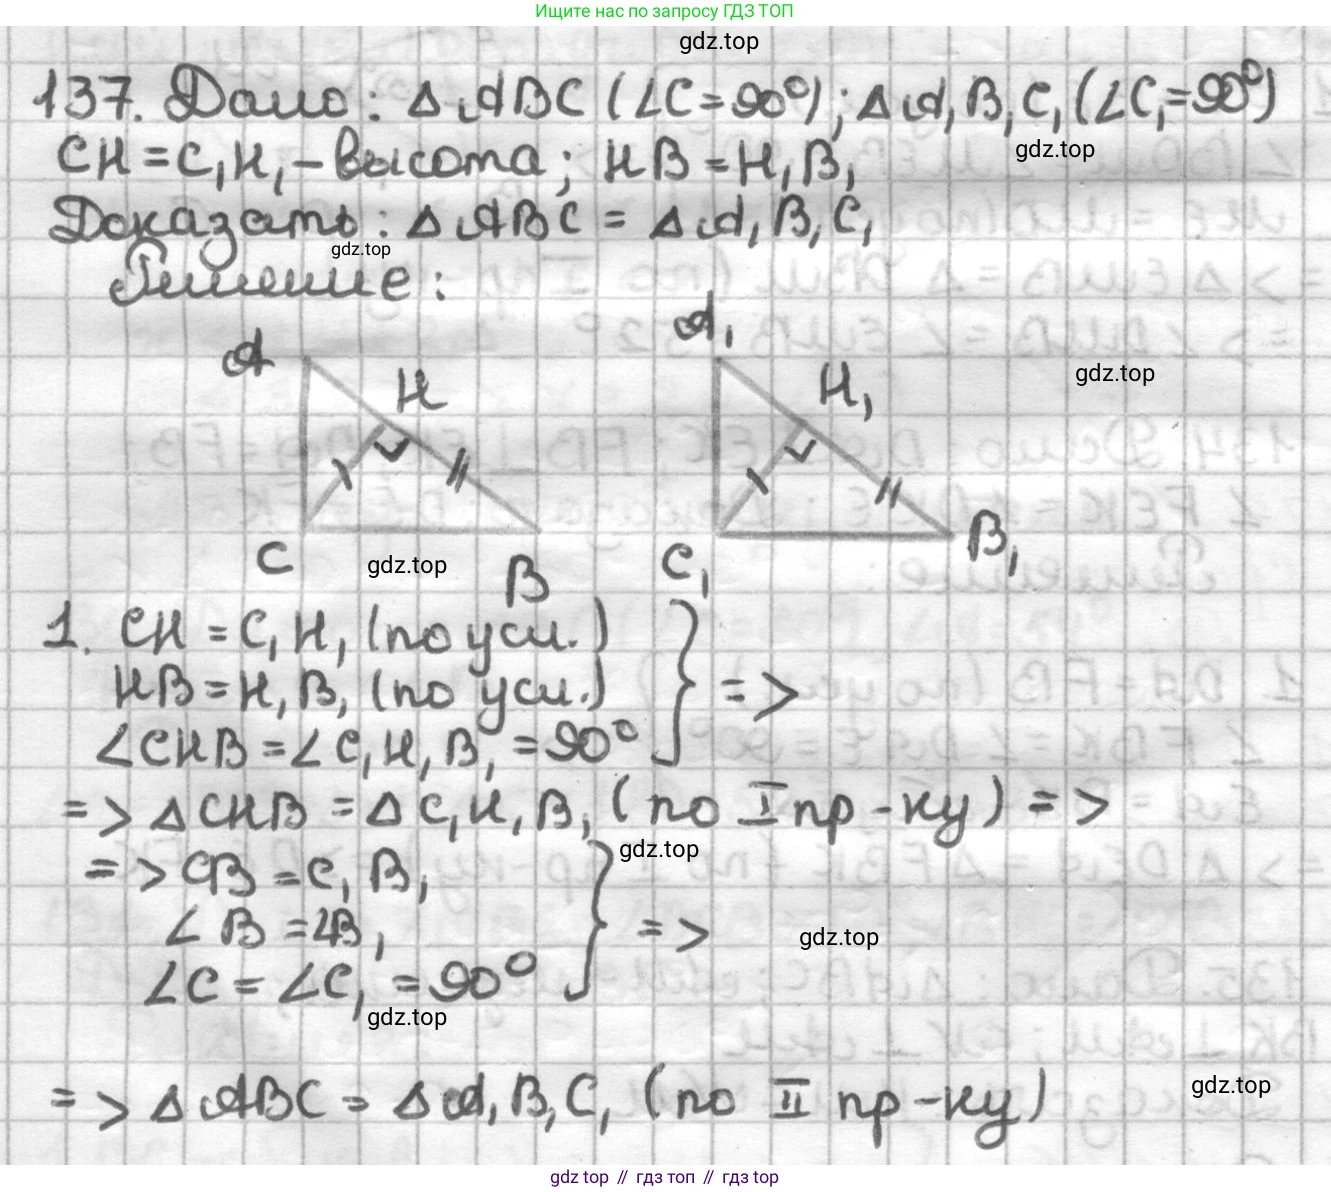 Ищите нас по запросу ГДЗ ТОП
gdz.top
137. Дано: Δ ABC (∠C = 90°); Δ A₁B₁C₁ (∠C₁ = 90°)
CH = C₁H₁ – высота; HB = H₁B₁
gdz.top
Доказать: Δ ABC = Δ A₁B₁C₁
gdz.top
Решение:
A
H
C
B
A₁
H₁
C₁
B₁
gdz.top
gdz.top
1. CH = C₁H₁ (по усл.)
HB = H₁B₁ (по усл.) } =>
∠CHB = ∠C₁H₁B₁ = 90°
=> Δ CHB = Δ C₁H₁B₁ (по I пр-ку) =>
gdz.top
=> CB = C₁B₁
∠B = ∠B₁ } =>
gdz.top
∠C = ∠C₁ = 90°
gdz.top
=> Δ ABC = Δ A₁B₁C₁ (по II пр-ку)
gdz.top
gdz top // гдз топ // гдз top